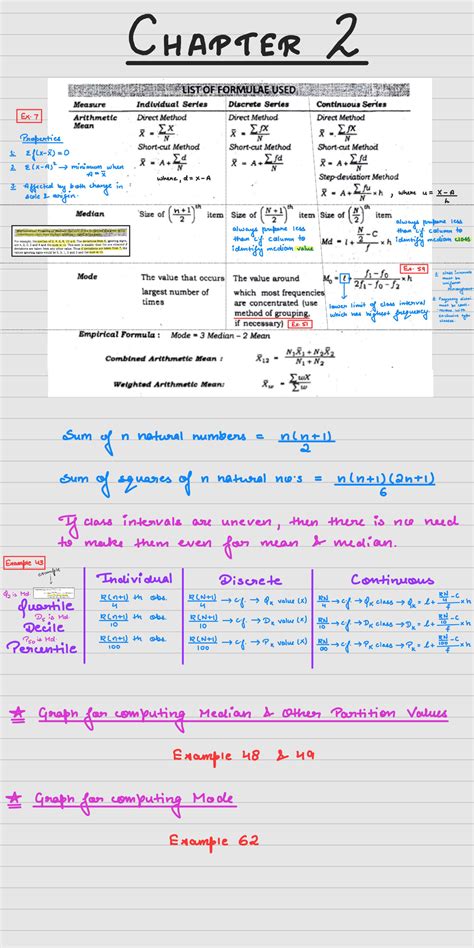 CHAPTER 2
LIST OF FORMULAE USED
Measure Individual Series Discrete Series Continuous Series
Ex. 7
Arithmetic Mean
Direct Method
X̄ = ΣX/N
Short-cut Method
X̄ = A + Σd/N
where, d = X-A
Direct Method
X̄ = ΣfX/N
Short-cut Method
X̄ = A + Σfd/N
Direct Method
X̄ = ΣfX/N
Short-cut Method
X̄ = A + Σfd/N
Step-deviation Method
X̄ = A + Σfu/N × h, where u = X-A/h
Properties
1. Σf(x-x̄) = 0
2. Σ(x-A)² → minimum when
A = x̄
3. Affected by both change in
scale & origin.
Median
Size of (n+1/2)th item
Size of (N+1/2)th item
always prepone less
than cf column to
identify median value
Size of (N/2)th item
Md = l + N/2-C/f × h
always prepone less
than cf column to
identify median class
Mode
The value that occurs
largest number of
times
The value around
which most frequencies
are concentrated (use
method of grouping,
if necessary) Ex. 51
Ex. 59
M₀ = l + f₁-f₀/2f₁-f₀-f₂ × h
lower limit of class interval
which has highest frequency
Empirical Formula : Mode = 3 Median – 2 Mean
Combined Arithmetic Mean : X̄₁₂ = N₁X̄₁ + N₂X̄₂/N₁ + N₂
Weighted Arithmetic Mean: X̄w = ΣwX/Σw
Sum of n natural numbers = n(n+1)/2
Sum of squares of n natural no's = n(n+1)(2n+1)/6
If class intervals are uneven, then there is no need
to make them even for mean & median.
Example 43
example
Individual Discrete Continuous
Q₂ is Md.
Quantile R(n+1)/4 th obs. R(N+1)/4 → cf → QK value (x) RN/4 → cf → QK class → QK = l + RN/4-C/f × h
D₅ is Md.
Decile R(n+1)/10 th obs. R(N+1)/10 → cf → DK value (x) RN/10 → cf → DK class → DK = l + RN/10-C/f × h
P₅₀ is Md.
Percentile R(n+1)/100 th obs. R(N+1)/100 → cf → PK value (x) RN/100 → cf → PK class → PK = l + RN/100-C/f × h
Graph for computing Median & Other Partition Values
Example 48 & 49
Graph for computing Mode
Example 62